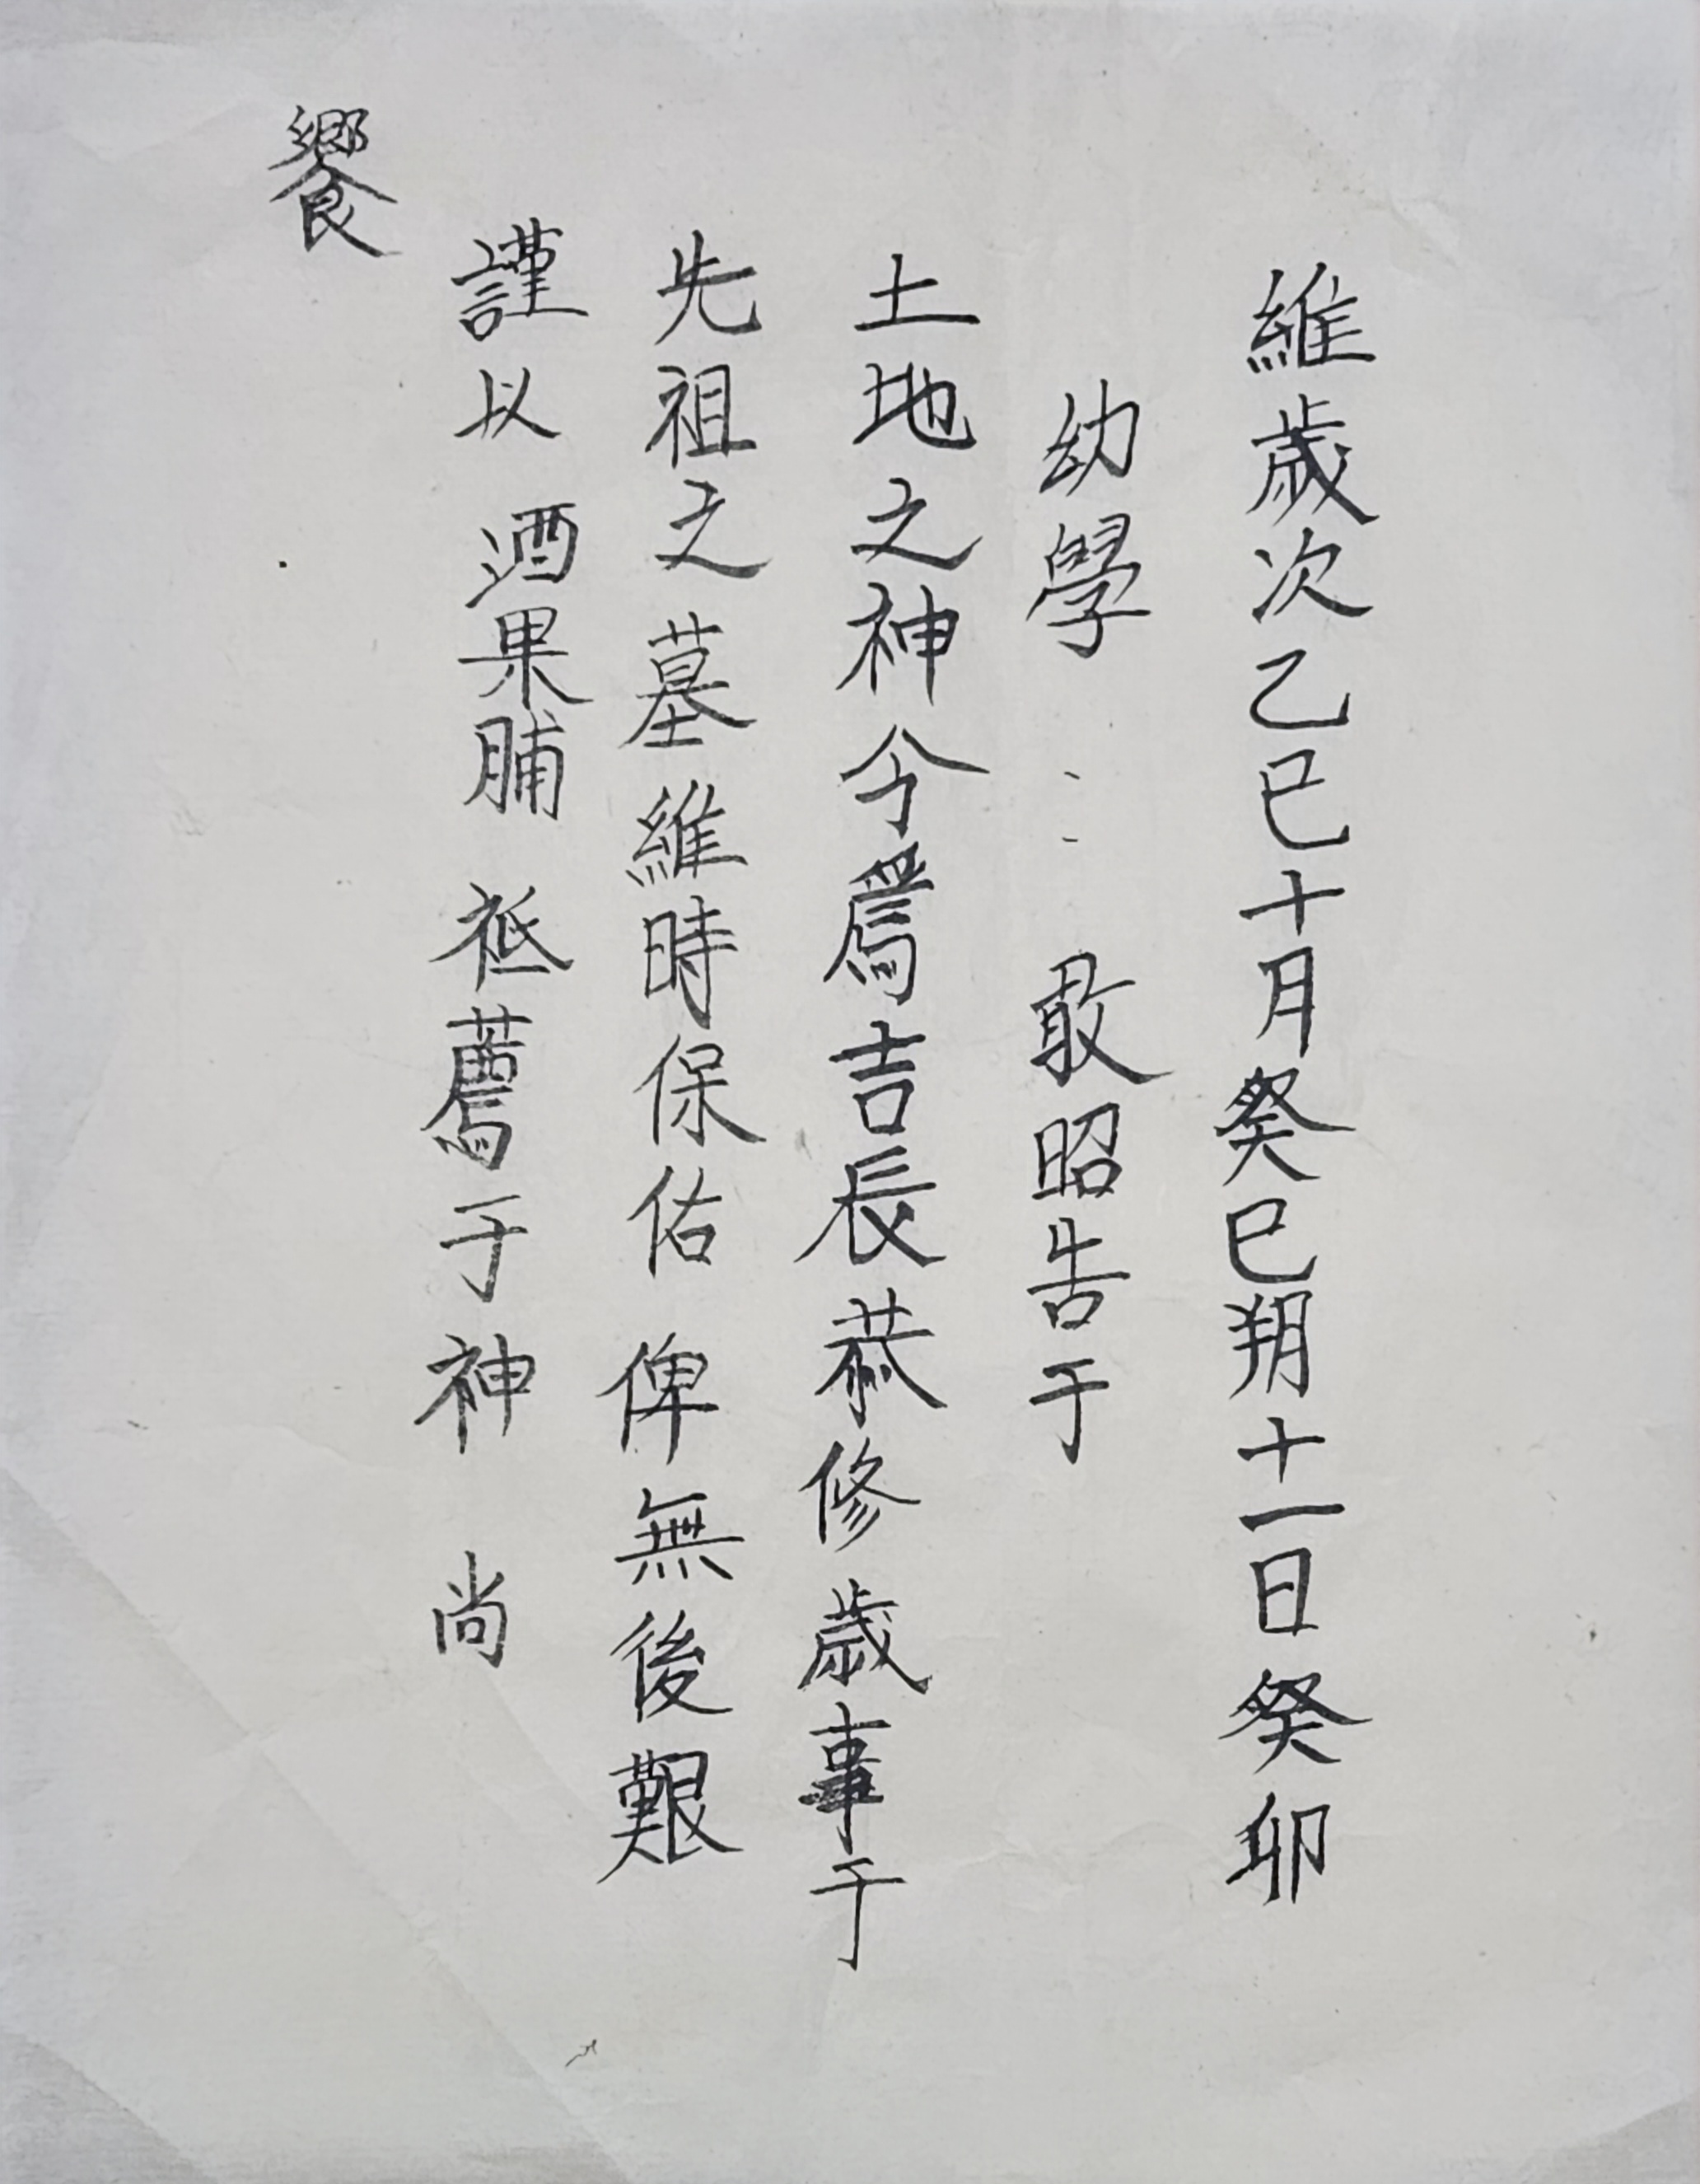 維歲次乙巳十月癸巳朔十一日癸卯
幼學 敢昭告于
土地之神今爲吉長恭修歲事于
先祖之墓維時保佑俾無後艱
謹以酒果脯祗薦于神尚
饗